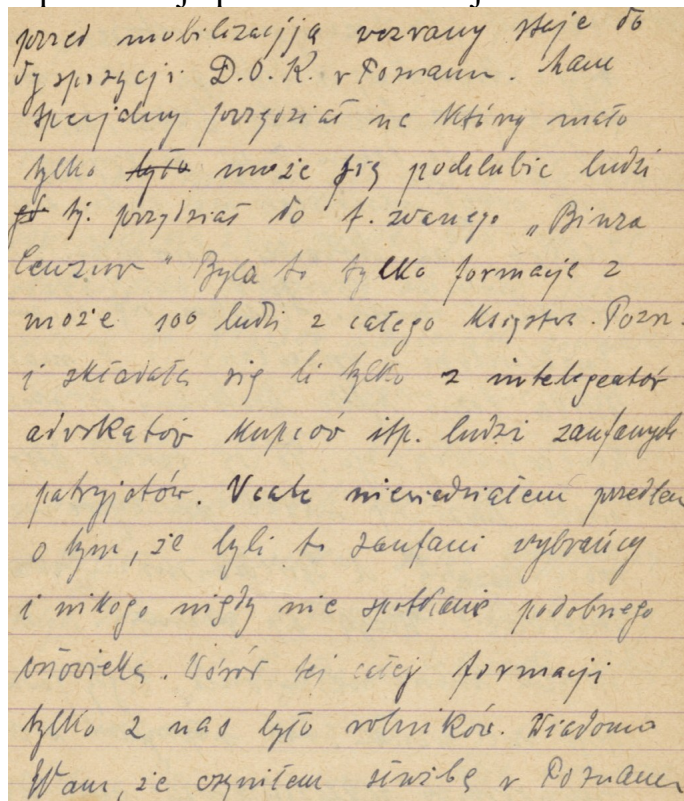 przed mobilizacją wezvany staje do
dyspozycji D.O.K. v Poznaniu. Mam
specjalny przydział na który mało
tylko było może się podchlubić ludzi
tj. przydział do t. zvanego „Biura
Cenzur" Była to tylko formacja z
może 100 ludzi z całego Księstva. Pozn.
i składała się li tylko z intelegentóv
advokatóv kupcóv itp. ludzi zaufanych
patryjotóv. Vcale nieviedziałem przedtem
o tym, że byli to zaufani vybrańcy
i nikogo nigdy nie spotkanie podobnego
człovieka. Wśród tej całej formacji
tylko 2 nas było rolnikóv. Wiadomo
Wam, że czyniłem służbę v Poznaniu